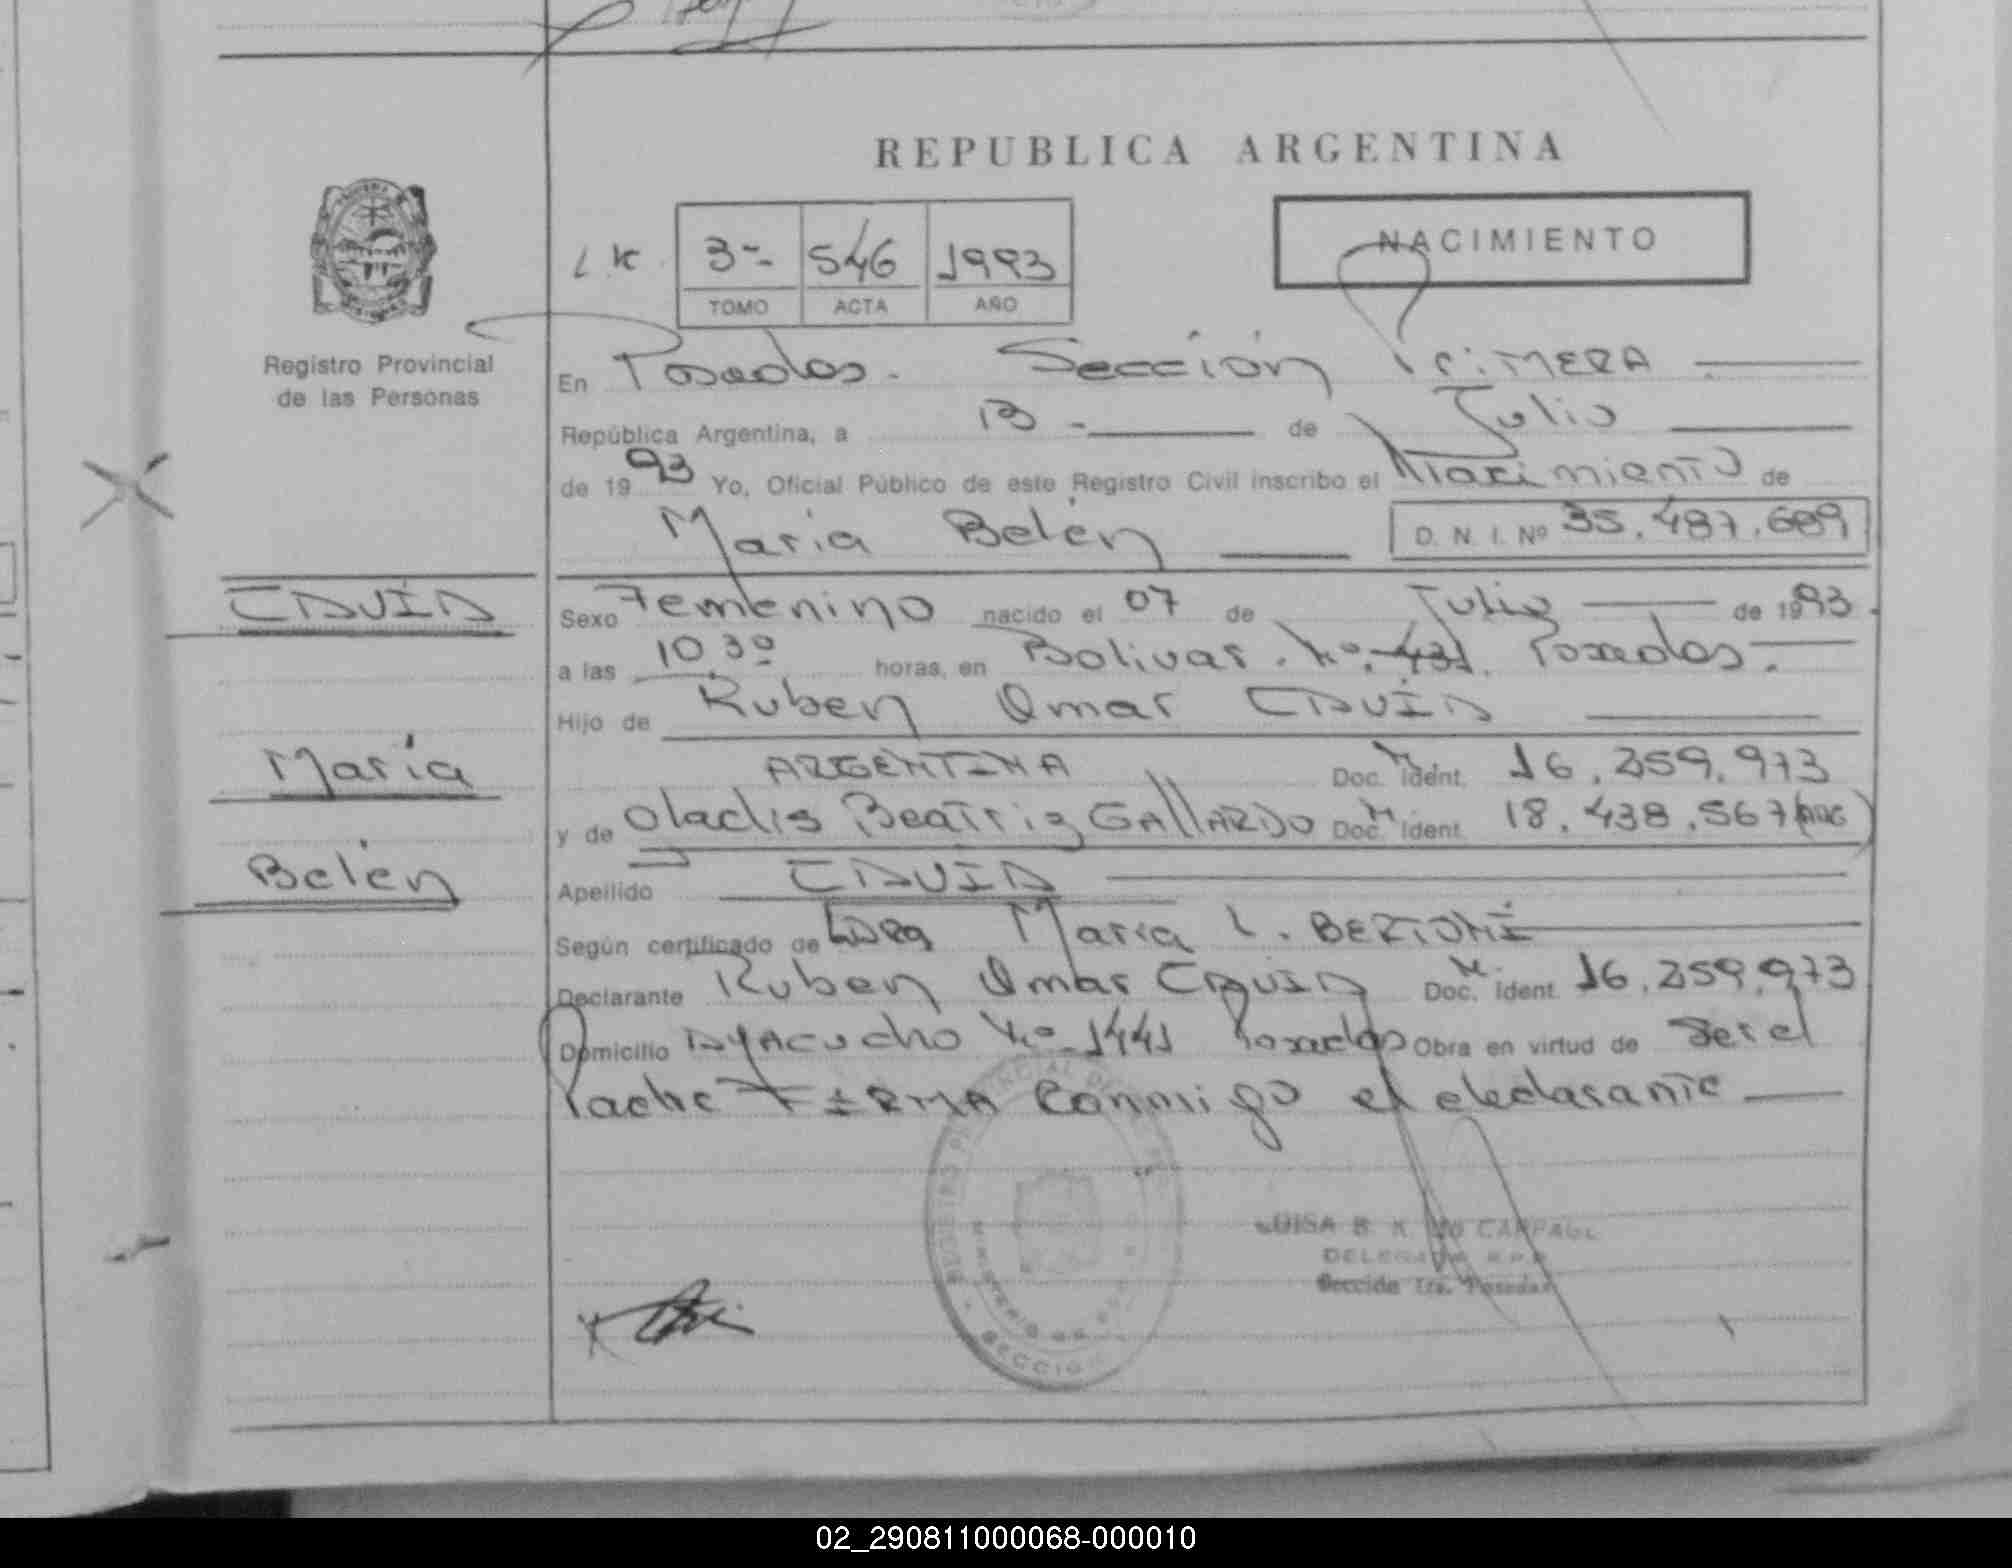 REPUBLICA ARGENTINA
NACIMIENTO
3= 546 1993
TOMO ACTA AÑO
Registro Provincial
de las Personas
En Posadas. Sección Primera
República Argentina, a 13 - de Julio
de 1993 Yo, Oficial Público de este Registro Civil inscribo el Nacimiento de
María Belén D. N. I. Nº 35.487.689
Sexo Femenino nacido el 07 de Julio de 1993.
a las 10,30 horas, en Bolivar. Nº 431. Posadas.
Hijo de Ruben Omar
ARGENTINA Doc. M Ident. 16.259.973
y de Gladis Beatriz GALLARDO Doc. M Ident. 18.438.567 (ARG)
Apellido
Según certificado de Maria L. BERTONI
Declarante Ruben Omar Doc. M. Ident. 16.259.973
Domicilio AYACucho Nº 1441 Posadas Obra en virtud de Ser el
Padre FIRMA Conmigo el declarante
María
Belén
LUISA B.
DELEGADA R.P.P.
Sección 1ra. Posadas
MINISTERIO DE
SECCION
02_290811000068-000010